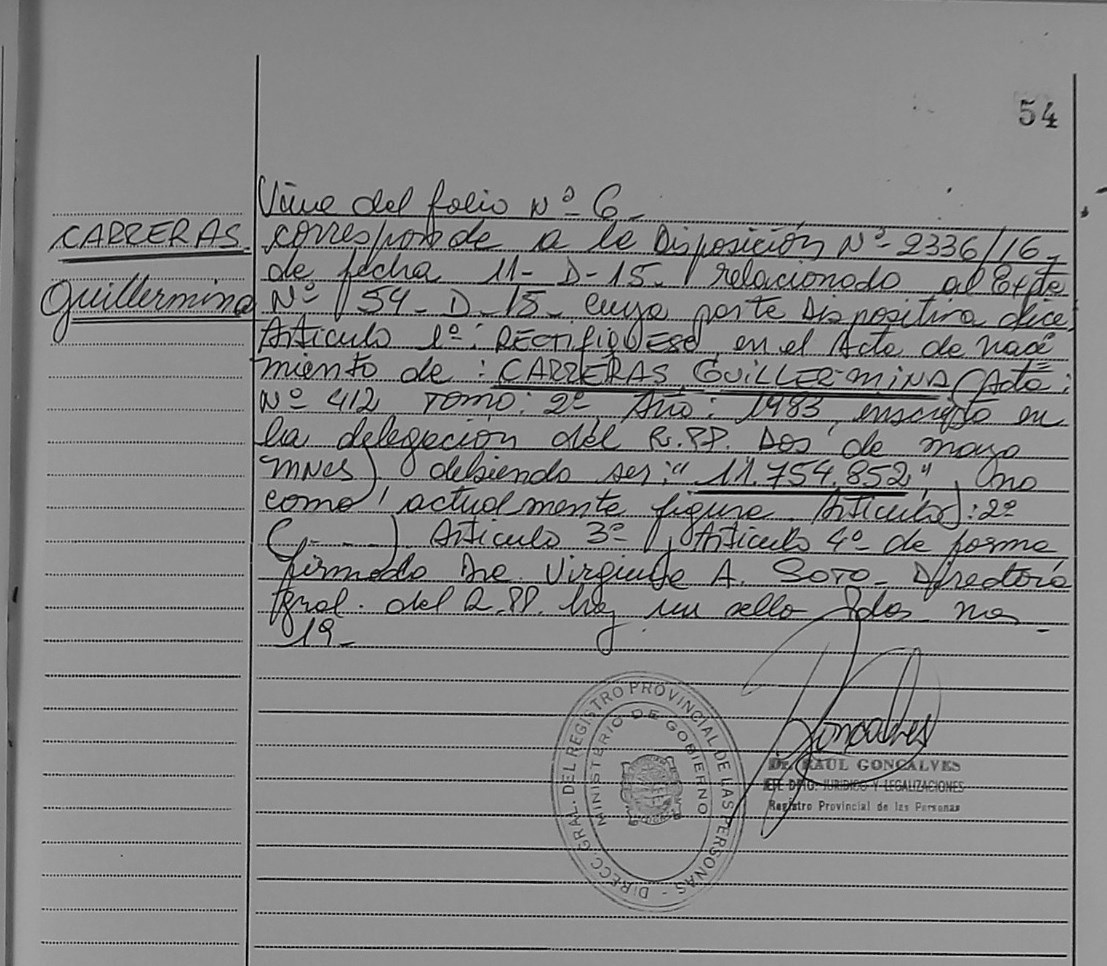 54
Viene del folio Nº 6-
CARRERAS
Guillermina
corresponde a la Disposición Nº 2336/16-
de fecha 11-D-15- relacionado al Expte
Nº 154-D-15- cuya parte Dispositiva dice
Articulo 1º: RECTIFIQUESE en el Acta de naci
miento de: CARRERAS, GUILLERMINA (Acta:
Nº 412 Tomo: 2º Año: 1983, inscripto en
la delegación del R.PP. Dos de mayo
Mnes) debiendo ser: "11.754.852", no
como actualmente figura. Articulo: 2º
(---) Articulo 3º Articulo 4º de forma
firmado Dra. Virginia A. Soto- Directora
Gral. del R.PP. hay un sello
19-
DIREC. GRAL. DEL REGISTRO PROVINCIAL DE LAS PERSONAS
MINISTERIO DE GOBIERNO
Goncalves
Dr. RAUL GONCALVES
JEFE DPTO. JURIDICO Y LEGALIZACIONES
Registro Provincial de las Personas